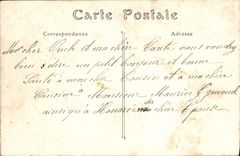 Carte Postale
Correspondance
Adresse
Mon cher Oncle et ma chère Tante vous voudrez
bien dire un petit bonjour et bonne
Santé à mon cher Cousin et à ma chère
Cousine à Monsieur Maurice
ainsi qu'à sa chère Épouse